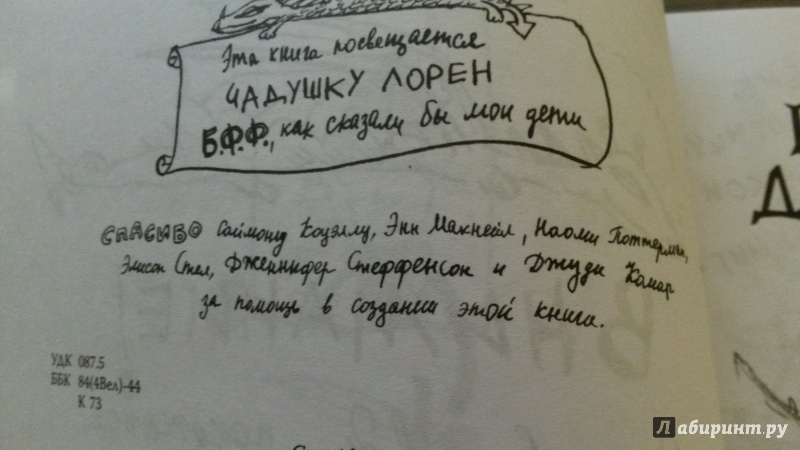 Эта книга посвещается
ЧАДУШКУ ЛОРЕН
Б.Ф.Ф., как сказали бы мои дети
СПАСИБО Саймону Коуэллу, Энн Макнейл, Наоми Поттерман,
Элисон Стел, Дженнифер Стеффенсон и Джуди Комар
за помощь в создании этой книги.
УДК 087.5
ББК 84(4Вел)-44
К 73
Лабиринт.ру